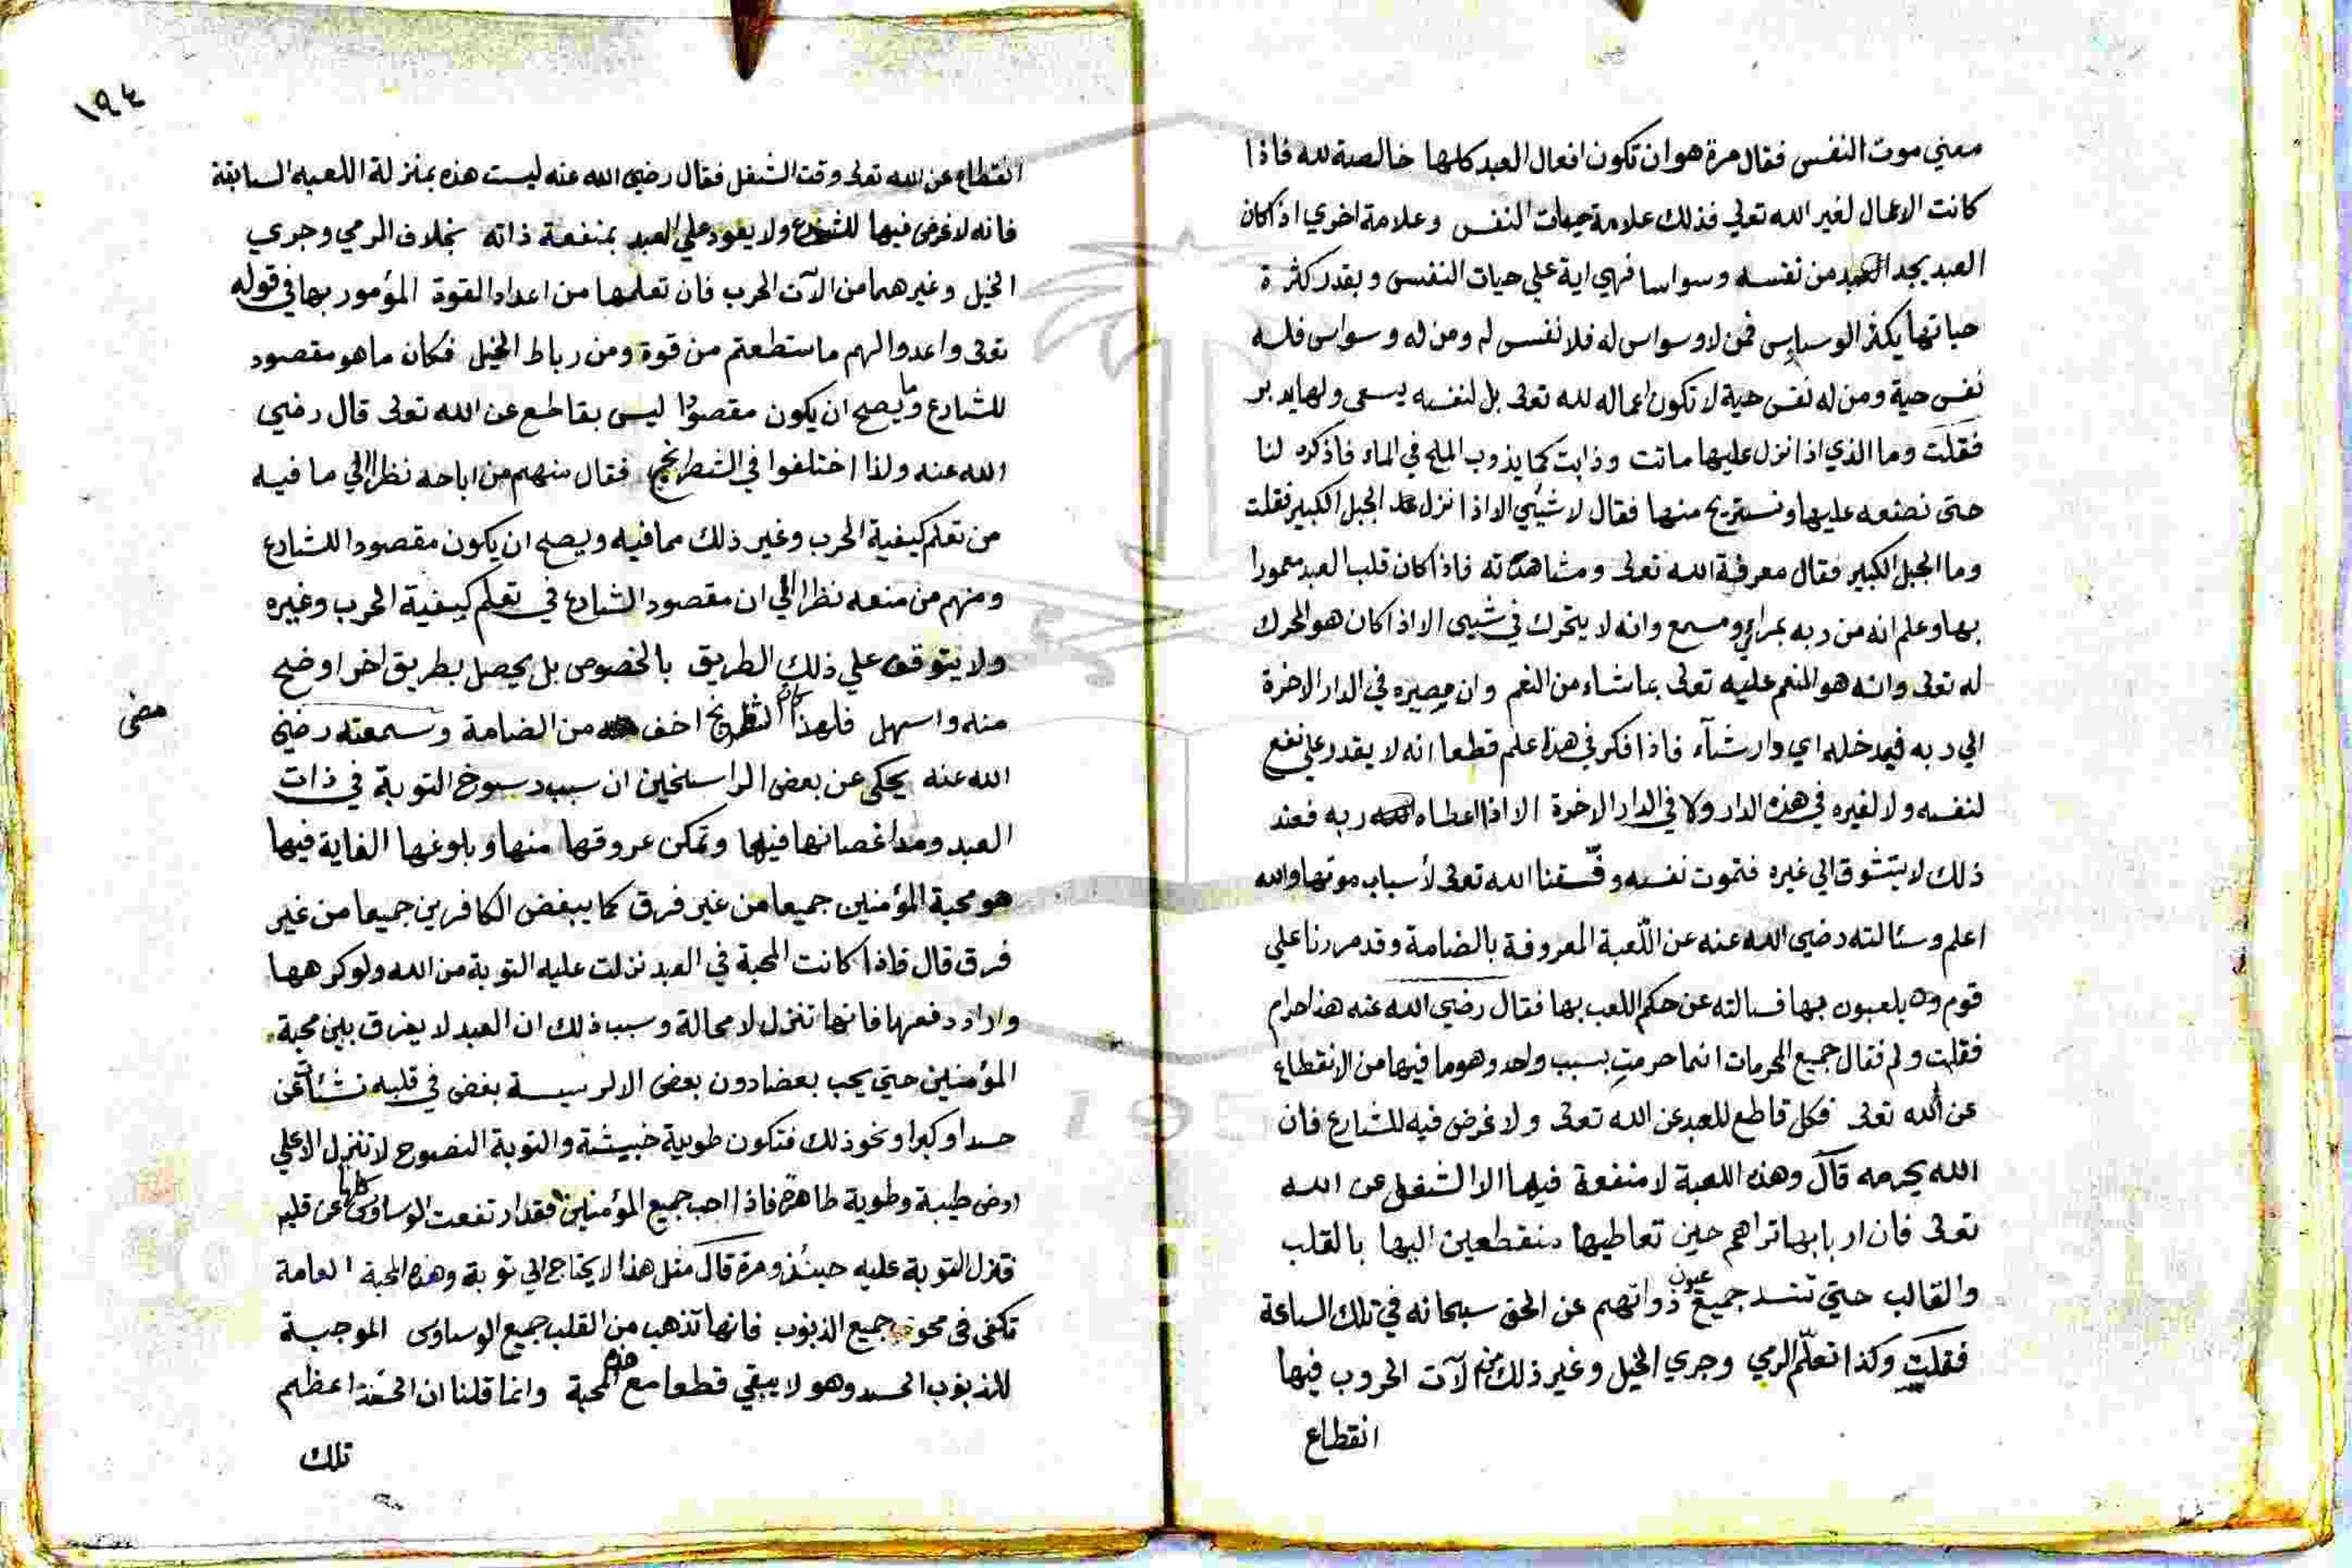 معني موت النفس فقال مرة هو ان تكون افعال العبد كلها خالصة لله فاذا
كانت الاعمال لغير الله تعلي فذلك علامة حيات النفس وعلامة اخري اذا كان
العبد يجد من نفسه وسواسا فهي اية علي حيات النفس وبقدر كثرة
حياتها يكثر الوسواس فمن لا وسواس له فلا نفس له ومن له وسواس فله
نفس حية ومن له نفس حية لا تكون اعماله لله تعلى بل لنفسه يسعى ولها يدبر
فقلت وما الذي اذا نزل عليها ماتت وذابت كما يذوب الملح في الماء فاذكره لنا
حتى نضعه عليها ونستريح منها فقال لا شيئي الا اذا نزل الجبل الكبير فقلت
وما الجبل الكبير فقال معرفة الله تعلى ومشاهدته فاذا كان قلب العبد معمورا
بها وعلم انه من ربه بمراي ومسمع وانه لا يتحرك في شيئ الا اذا كان هو المحرك
له تعلى وانه هو المنعم عليه تعلى بما شاء من النعم وان مصيره في الدار الاخرة
الي ربه فيدخله اي دار شآء فاذا فكر في هذا علم قطعا انه لا يقدر علي نفع
لنفسه ولا لغيره في هذه الدار ولا في الدار الاخرة الا اذا اعطاه ربه فعند
ذلك لا يتشوق الي غيره فتموت نفسه وفقنا الله تعلى لأسباب موتها والله
اعلم وسئالته رضي الله عنه عن اللعبة المعروفة بالضامة وقد مررنا علي
قوم وهم يلعبون بها فسالته عن حكم اللعب بها فقال رضي الله عنه هذا حرام
فقلت ولم فقال جميع المحرمات انما حرمت بسبب واحد وهو ما فيها من الانقطاع
عن الله تعلى فكل قاطع للعبد عن الله تعلى ولا غرض فيه للشارع فان
الله يحرمه قال وهذه اللعبة لا منفعة فيها الا الشغل عن الله
تعلى فان اربابها تراهم حين تعاطيها منقطعين اليها بالقلب
والقالب حتي تنسد جميع عيون ذواتهم عن الحق سبحانه في تلك الساعة
فقلت وكذا تعلّم الرمي وجري الخيل وغير ذلك من آلات الحروب فيها
انقطاع
١٩٤
انقطاع عن الله تعلى وقت الشغل فقال رضي الله عنه ليست هذه بمنزلة اللعبه السابقة
فانه لا غرض فيها للشارع ولا يعود علي العبد بمنفعة ذاته بخلاف الرمي وجري
الخيل وغيرهما من الآت الحرب فان تعلمها من اعداد القوة المؤمور بها في قوله
تعلى واعدوا لهم ما ستطعتم من قوة ومن رباط الخيل فكان ما هو مقصود
للشارع وما يصح ان يكون مقصودا ليس بقاطع عن الله تعلى قال رضي
الله عنه ولذا اختلفوا في الشطرنج فقال منهم من اباحه نظرا الي ما فيه
من تعلم كيفية الحرب وغير ذلك مما فيه ويصح ان يكون مقصودا للشارع
ومنهم من منعه نظرا الي ان مقصود الشارع في تعلم كيفية الحرب وغيره
ولا يتوقف علي ذلك الطريق بالخصوص بل يحصل بطريق اخر اوضح
منه واسهل فلهذا كان الشطرنج اخف من الضامة وسمعته رضي
الله عنه يحكى عن بعض الراسخين ان سبب رسوخ التوبة في ذات
العبد ومد اغصانها فيها وتمكن عروقها منها وبلوغها الغاية فيها
هو محبة المؤمنين جميعا من غير فرق كما يبغض الكافرين جميعا من غير
فرق قال فاذا كانت المحبة في العبد نزلت عليه التوبة من الله ولو كرهها
واراد دفعها فانها تنزل لا محالة وسبب ذلك ان العبد لا يفرق بين محبة
المؤمنين حتي يحب بعضا دون بعض الا لرسيسة بغض في قلبه نشئات عن
حسد او كبر او نحو ذلك فتكون طوية خبيثة والتوبة النصوح لا تنزل الا علي
ارض طيبة وطوية طاهرة فاذا احب جميع المؤمنين فقد ارتفعت الوساوس كلها عن قلبه
فتنزل التوبة عليه حينئذ ومرة قال مثل هذا لا يحتاج الي توبة وهذه المحبة العامة
تكفي في محو جميع الذنوب فانها تذهب من القلب جميع الوساوس الموجبة
للذنوب الحسد وهو لا يبقي قطعا مع هذه المحبة وانما قلنا ان الحسد اعظم
تلك